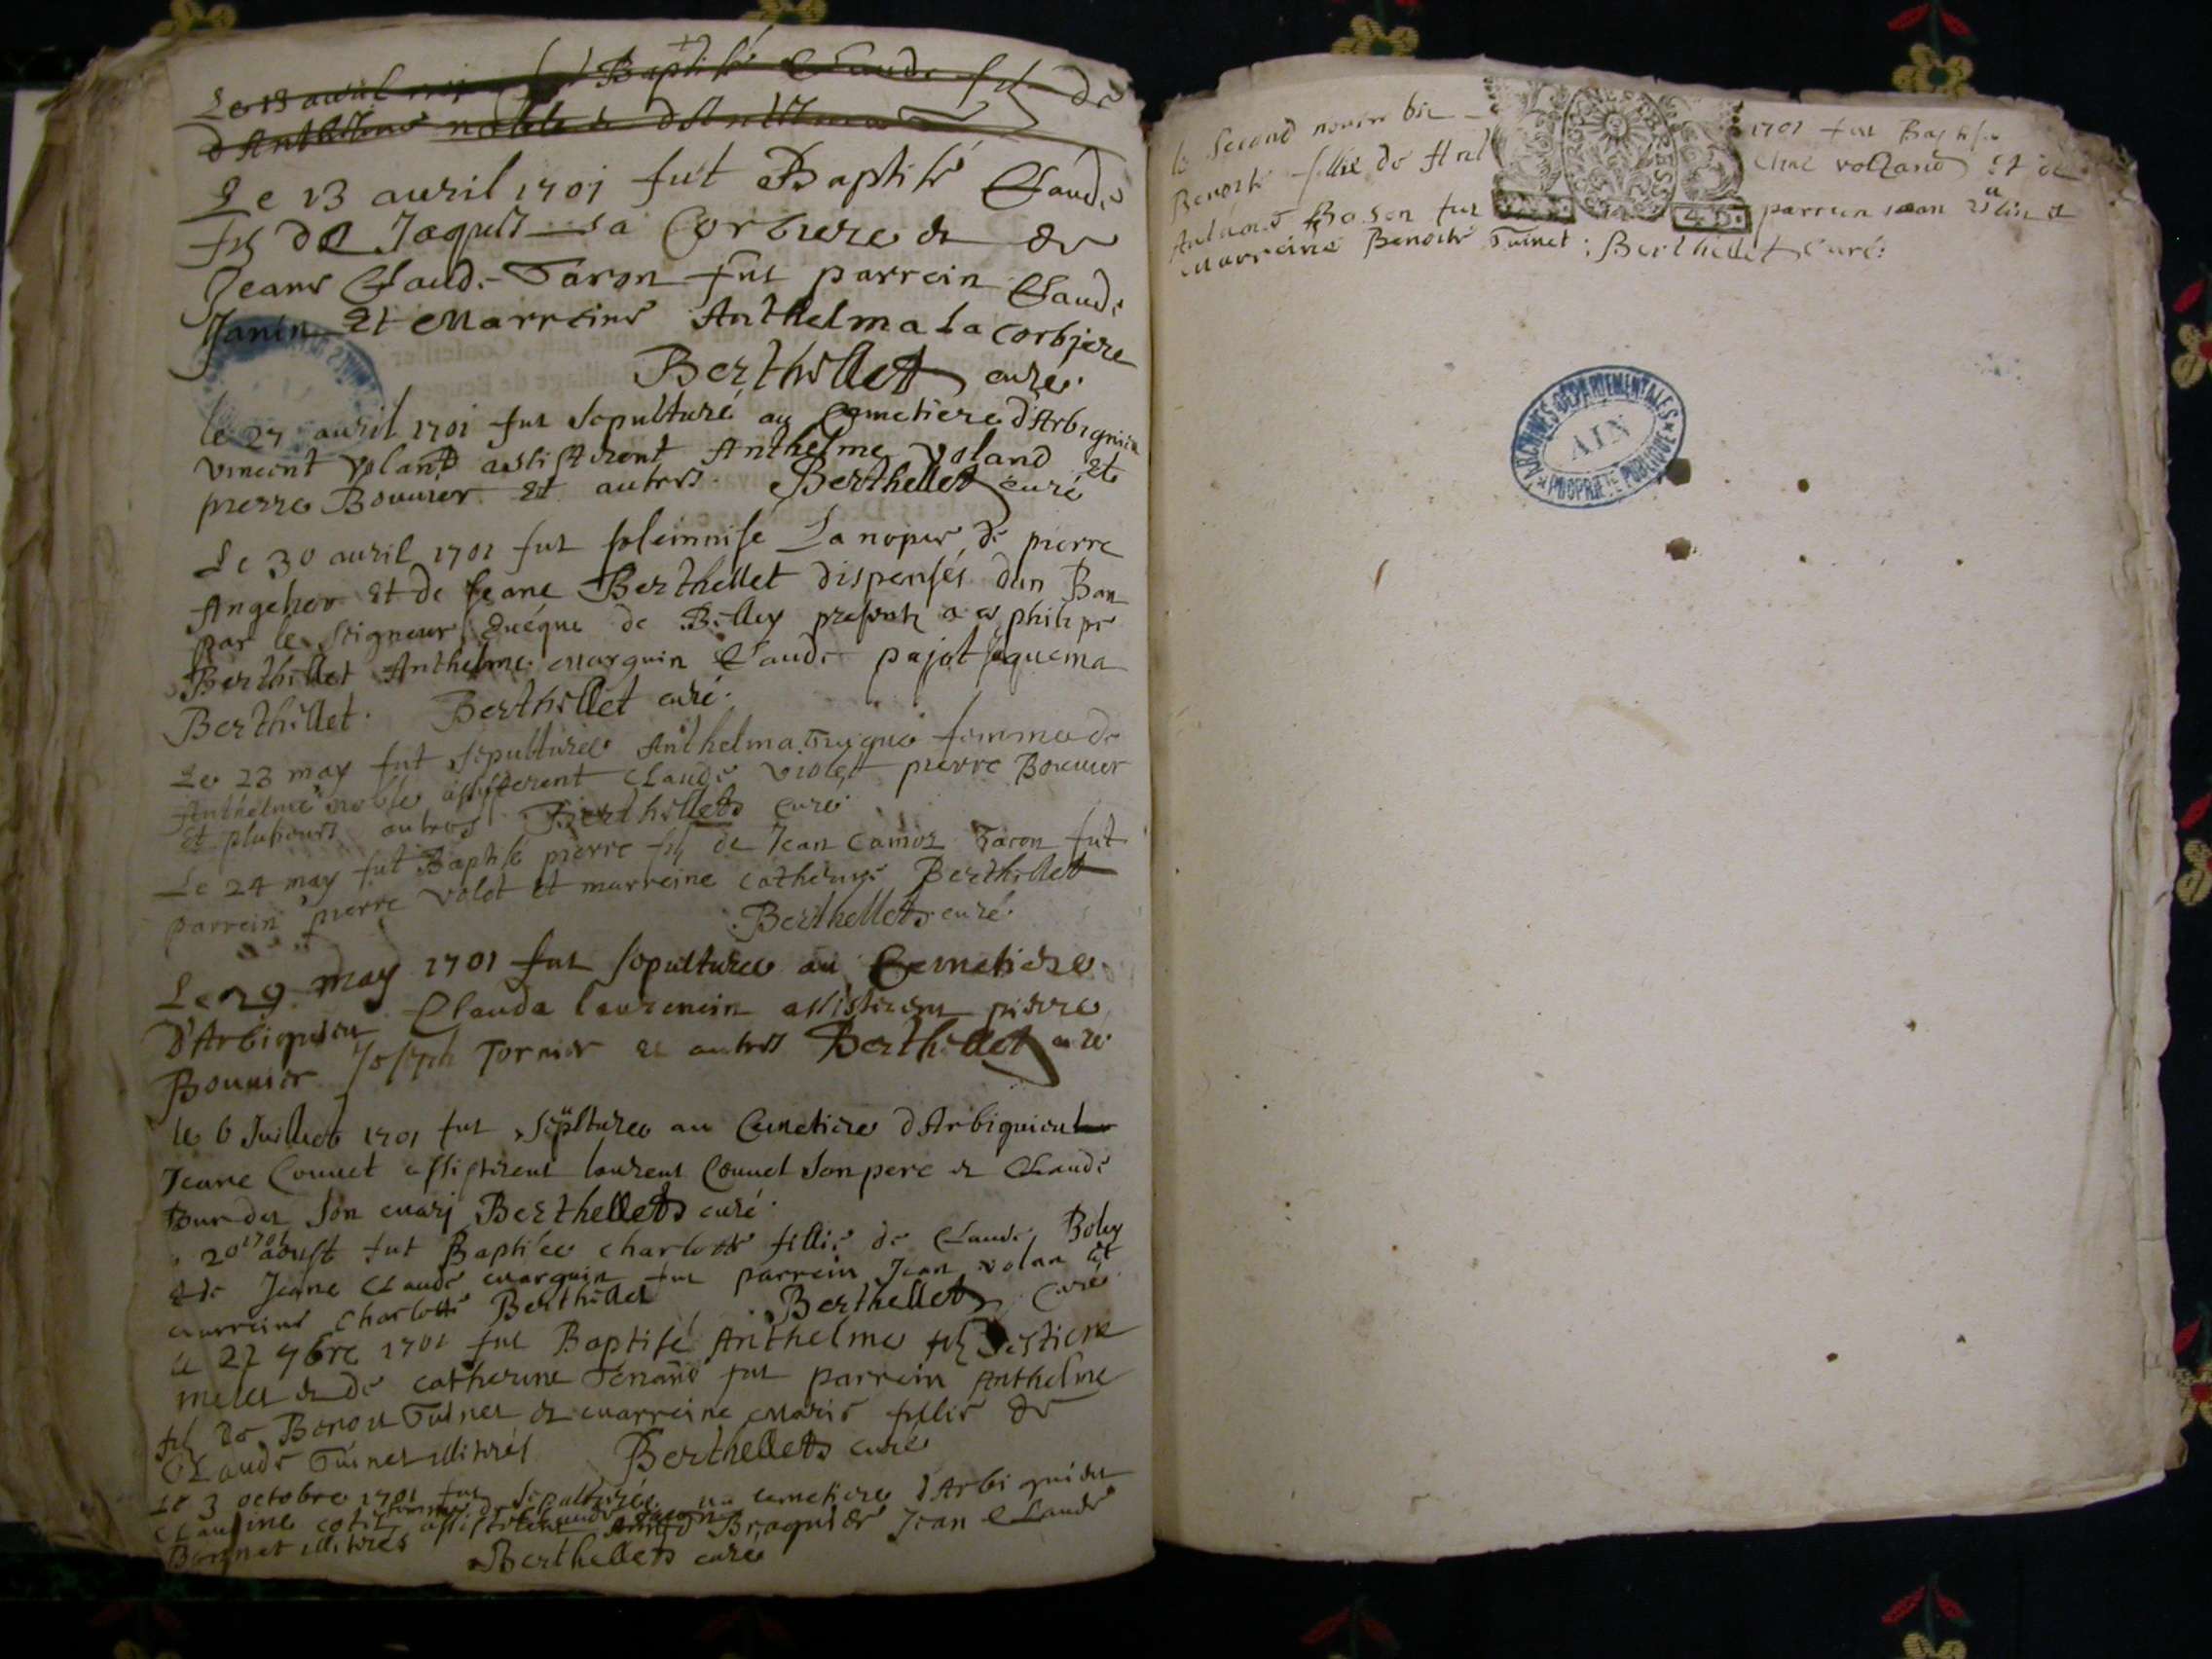 Le 13 avril 1701 fut Baptisé Claude fils de
d'Anthelme noble &
Le 13 auril 1701 fut Baptisé Claude
fils de Jaques La Corbiere & de
Jeane Claude Taron fut parrein Claude
Janin Et Marreine Anthelma La Corbjere
Berthellet curé.
le 27 auril 1701 fut sepulturé au Cemetiere d'Arbignieu
vincent voland assisterent Anthelme voland et
pierre Bouuier et autres. Berthellet curé
Le 30 auril 1701 fut soleinnisé La nopce de pierre
et de Jeane Berthellet dispensés dun Ban
par le seigneur Euéque de Belley presents a ce philipe
Berthellet Anthelme Marguin Claude pajot Jaquema
Berthellet. Berthellet curé.
Le 23 may fut sepulturee Anthelma femme de
Anthelme noble assisterent Claude violet pierre Bouuier
et plusieurs autres Berthellet curé
Le 24 may fut Baptisé pierre fils de Jean Camoz Taron fut
parrein pierre volot et marreine catherine Berthellet
Berthellet curé.
Le 29 may 1701 fut sepulturee au Cemetiere
D'Arbignieu Clauda laurencin assisterent pierre
Bouuier Joseph Tornier et autres Berthellet curé
le 6 Juillet 1701 fut sepulturee au Cemetiere d'Arbignieu
Jeane Couuet assisterent laurent Couuet son pere & Claude
son mary Berthellet curé.
20 1701 aoust fut Baptisée charlotte fillie de Claude Boley
& de Jeane Claude Marguin fut parrein Jean volan et
marreine charlotte Berthellet Berthellet curé
le 27 7bre 1701 fut Baptisé Anthelme fils destiene
melet & de catherine fut parrein Anthelme
fils de Benoit Tuinet & marreine Marie fillie de
Claude Tuinet illitérés Berthellet curé
Le 3 octobre 1701 fut sepulturée au cemetiere d'Arbignieu
Claudine femme de Claude
assisterent Braquier Jean Claude
illiteres Berthellet curé
le second nouembre 1701 fut Baptisée
Benoite fillie de voland et de
Bosen fut parrein et
Marreine Benoite Tuinet: Berthellet curé:
ARCHIVES DÉPARTEMENTALES
AIN
PROPRIÉTÉ PUBLIQUE